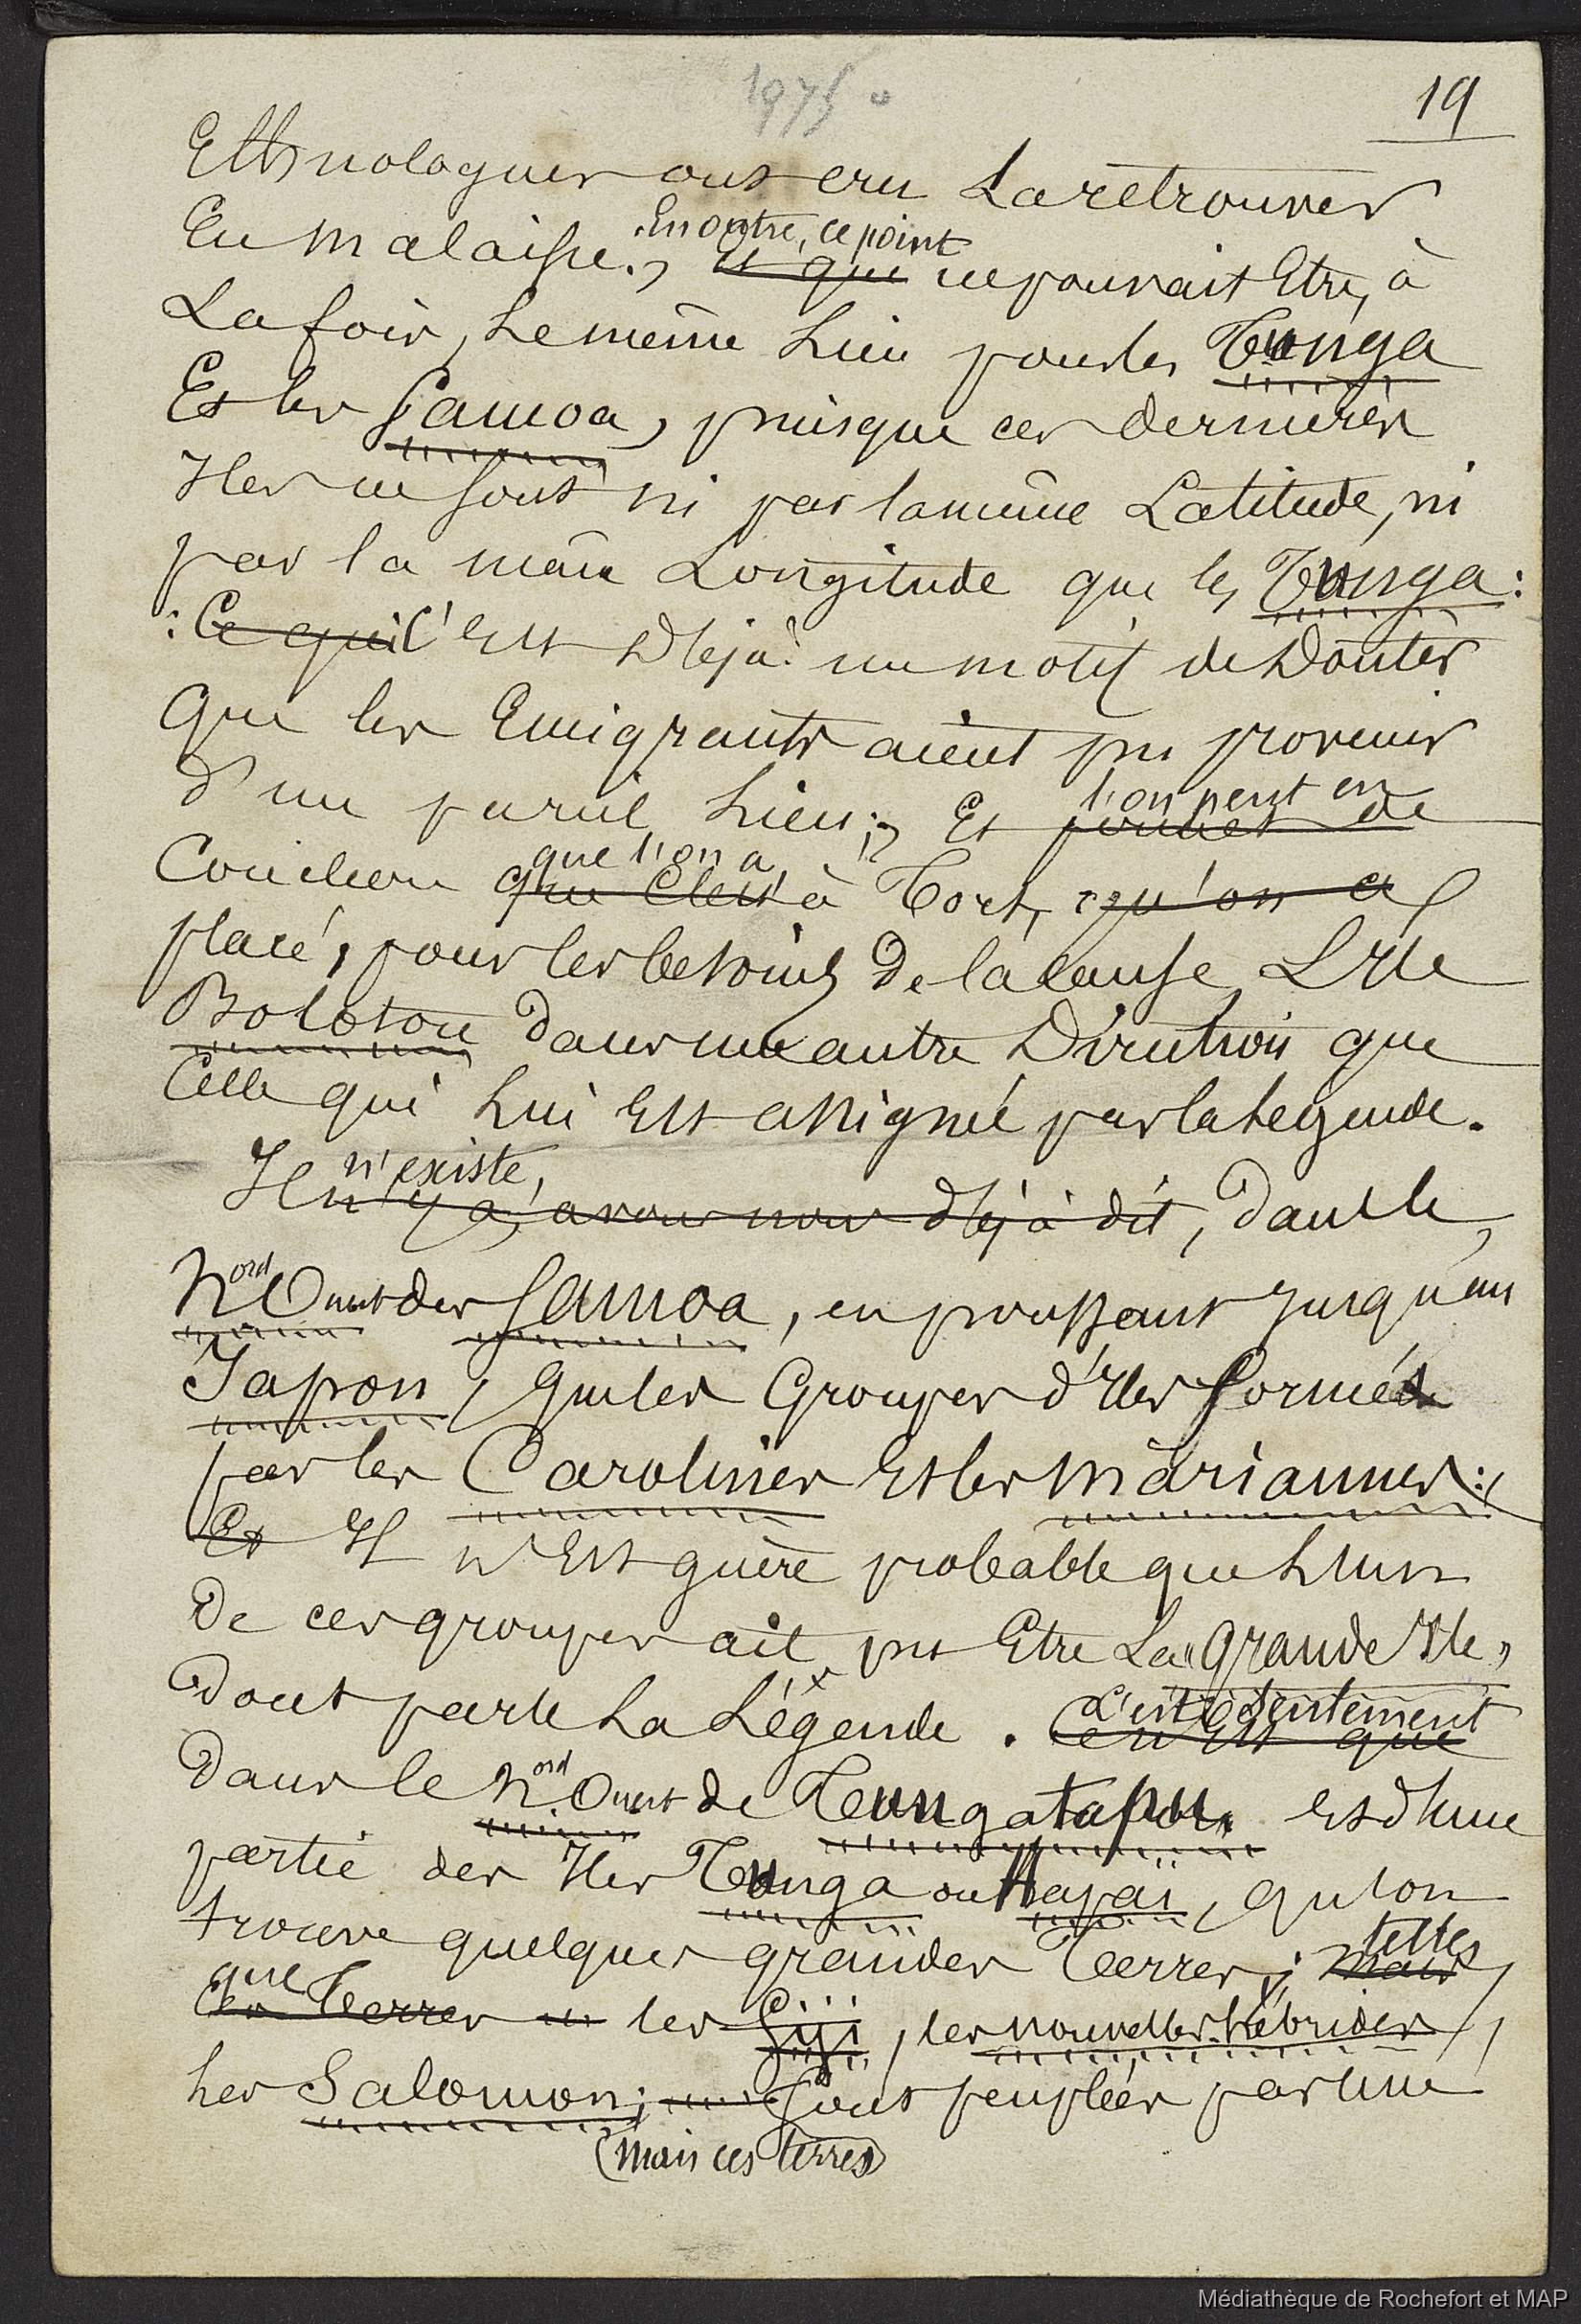 1975
19
Ethnologues ont cru La retrouver
En outre, ce point
En Malaisie., et que ne pouvait Etre, à
La fois, Le même Lieu pour les Tunga
Et les Samoa, puisque ces dernières
Iles ne sont ni par la même Latitude, ni
par la même Longitude que les Tunga:
: Ce qui C'est Déjà un motif de Douter
Que les Emigrants aient pu provenir
l'on peut en
d'un pareil Lieu; Et de
que l'on a
Conclure que à Tort, qu'on a
placé, pour les besoins De la cause, L'Ile
Bolotou Dans une autre Direction que
Celle qui Lui Est assignée par la Légende.
n'existe,
Il n'y a, avons nous déjà dit, Dans le
Nord Ouest des Samoa, en poussant jusqu'au
Japon, que les Groupes d'Iles formés
par les Carolines et les Mariannes:
Et Il n'Est guère probable que L'un
De ces groupes ait pu Etre La "Grande Ile"
Dont parle La Légende. C'est évidemment
ce n'est que
Dans le Nord Ouest de Tungatapu et d'une
partie des Iles Tunga ou Hapaï, qu'on
trouve quelques grandes Terres; telles
mais
que
Ces Terres les Fiji, les Nouvelles Hébrides,
Les Salomon; sont peuplées par une
(Mais ces terres)
Médiathèque de Rochefort et MAP